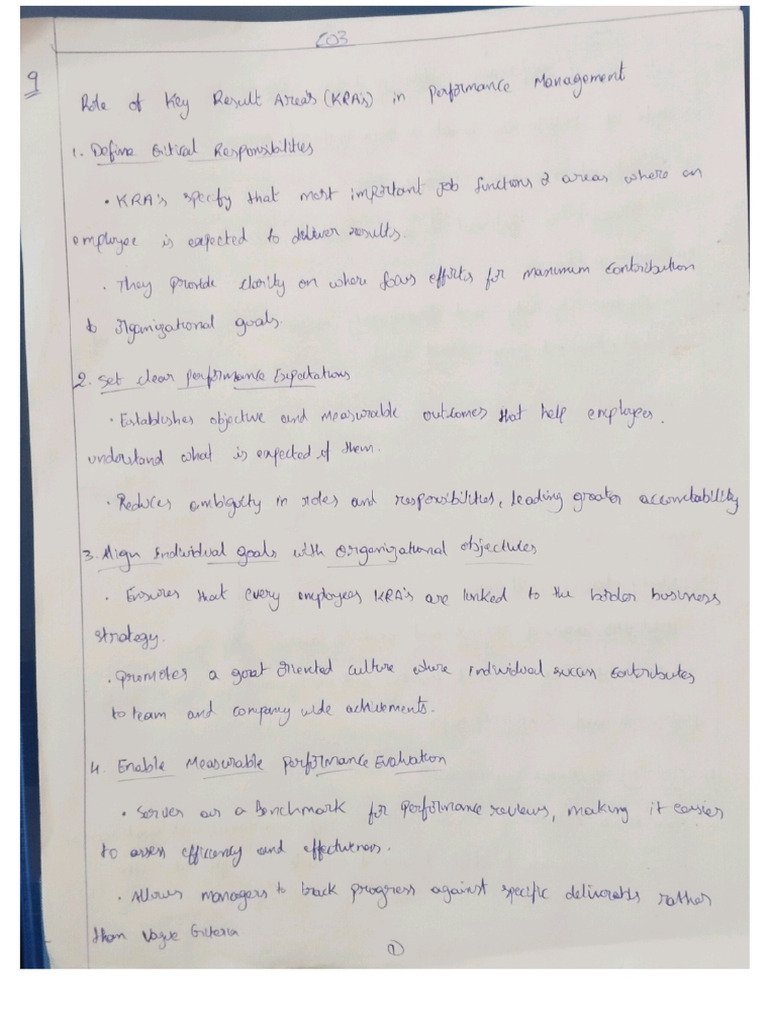 CO3
9
Role of Key Result Area's (KRA's) in Performance Management
1. Define Critical Responsibilities
• KRA's specify that most important job functions & areas where an
employee is expected to deliver results.
• They provide clarity on where focus efforts for maximum contribution
to organizational goals.
2. Set clear performance Expectations
• Establishes objective and measurable outcomes that help employees.
understand what is expected of them.
• Reduces ambiguity in roles and responsibilities, leading greater accountability
3. Align Individual goals with organizational objectives
• Ensures that every employees KRA's are linked to the border business
strategy.
• promotes a goal oriented culture where individual success contributes
to team and company wide achievements.
4. Enable Measurable performance Evaluation
• Serves as a Benchmark for performance reviews, making it easier
to assess efficiency and effectiveness.
• Allows managers to track progress against specific deliverables rather
than vague Criteria
1